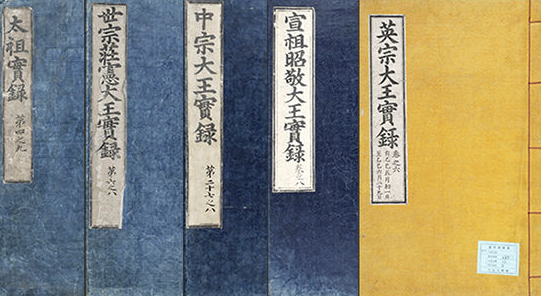 太祖實錄
第四之九
世宗莊憲大王實錄
第六之八
中宗大王實錄
第二十七之八
宣祖昭敬大王實錄
卷之八
英宗大王實錄
卷之六